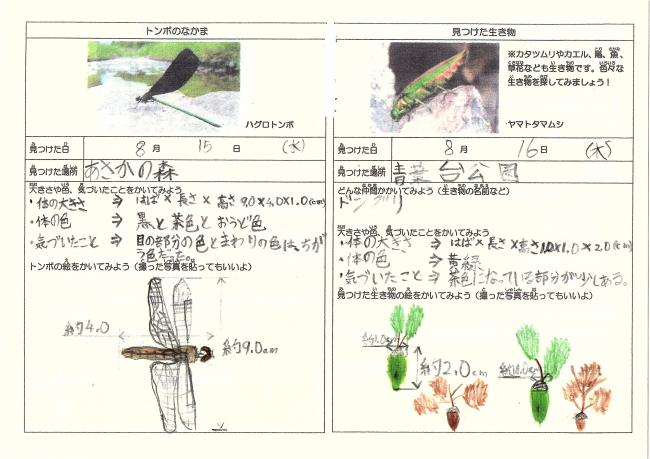 トンボのなかま
ハグロトンボ
見つけた日 8 月 15 日 (水)
見つけた場所 あさかの森
大きさや色、気づいたことをかいてみよう
・体の大きさ ⇒ はば×長さ×高さ 9.0×4.0×1.0(cm)
・体の色 ⇒ 黒と茶色とおうど色
・気づいたこと ⇒ 目の部分の色とまわりの色は、ちが
う色だった。
トンボの絵をかいてみよう(撮った写真を貼ってもいいよ)
約4.0
約9.0cm
見つけた生き物
※カタツムリやカエル、鳥、魚、
草花なども生き物です。色々な
生き物を探してみましょう!
ヤマトタマムシ
見つけた日 8 月 16 日 (木)
見つけた場所 青葉台公園
どんな仲間かかいてみよう(生き物の名前など)
ドングリ
大きさや色、気づいたことをかいてみよう
・体の大きさ ⇒ はば×長さ×高さ 1.0×1.0×2.0(cm)
・体の色 ⇒ 黄緑
・気づいたこと ⇒ 茶色になっている部分が少しある。
見つけた生き物の絵をかいてみよう(撮った写真を貼ってもいいよ)
約1.0cm
約2.0cm
約1.0cm